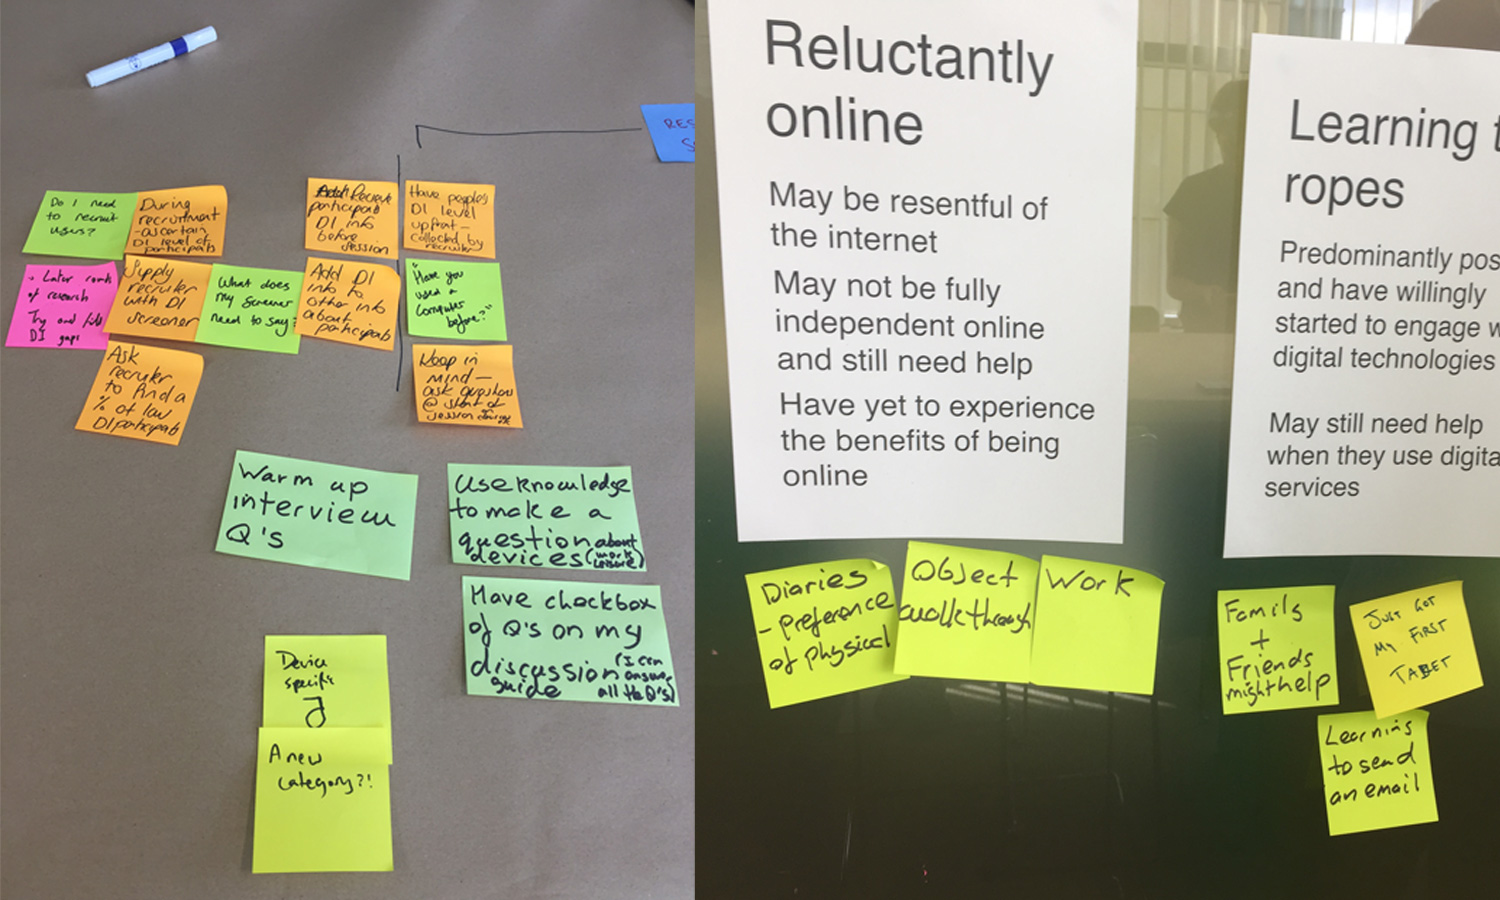 RES
Do I need
to recruit
users?
During
recruitment
-ascertain
DI level of
participants
Recruit
participants
DI info
before
session
Have people's
DI level
upfront -
collected by
recruiter
Later rounds
of research
Try and fill
DI gaps
Supply
recruiter
with DI
screener
What does
my screener
need to say?
Add DI
info to
other info
about
participants
"Have you
used a
computer
before?"
Ask
recruiter
to find a
% of low
DI participants
Keep in
mind —
ask questions
@ start of
session
Warm up
interview
Q's
Use knowledge
to make a
question about
devices (work
leisure)
Have checkbox
of Q's on my
discussion (I can
guide answer
all the Q's)
Device
specific
A new
category?!
Reluctantly
online
May be resentful of
the internet
May not be fully
independent online
and still need help
Have yet to experience
the benefits of being
online
Diaries
- preference
of physical
Object
walkthrough
Work
Learning t
ropes
Predominantly pos
and have willingly
started to engage w
digital technologies
May still need help
when they use digita
services
Family
+
Friends
might help
JUST GOT
MY FIRST
TABLET
Learning
to send
an email